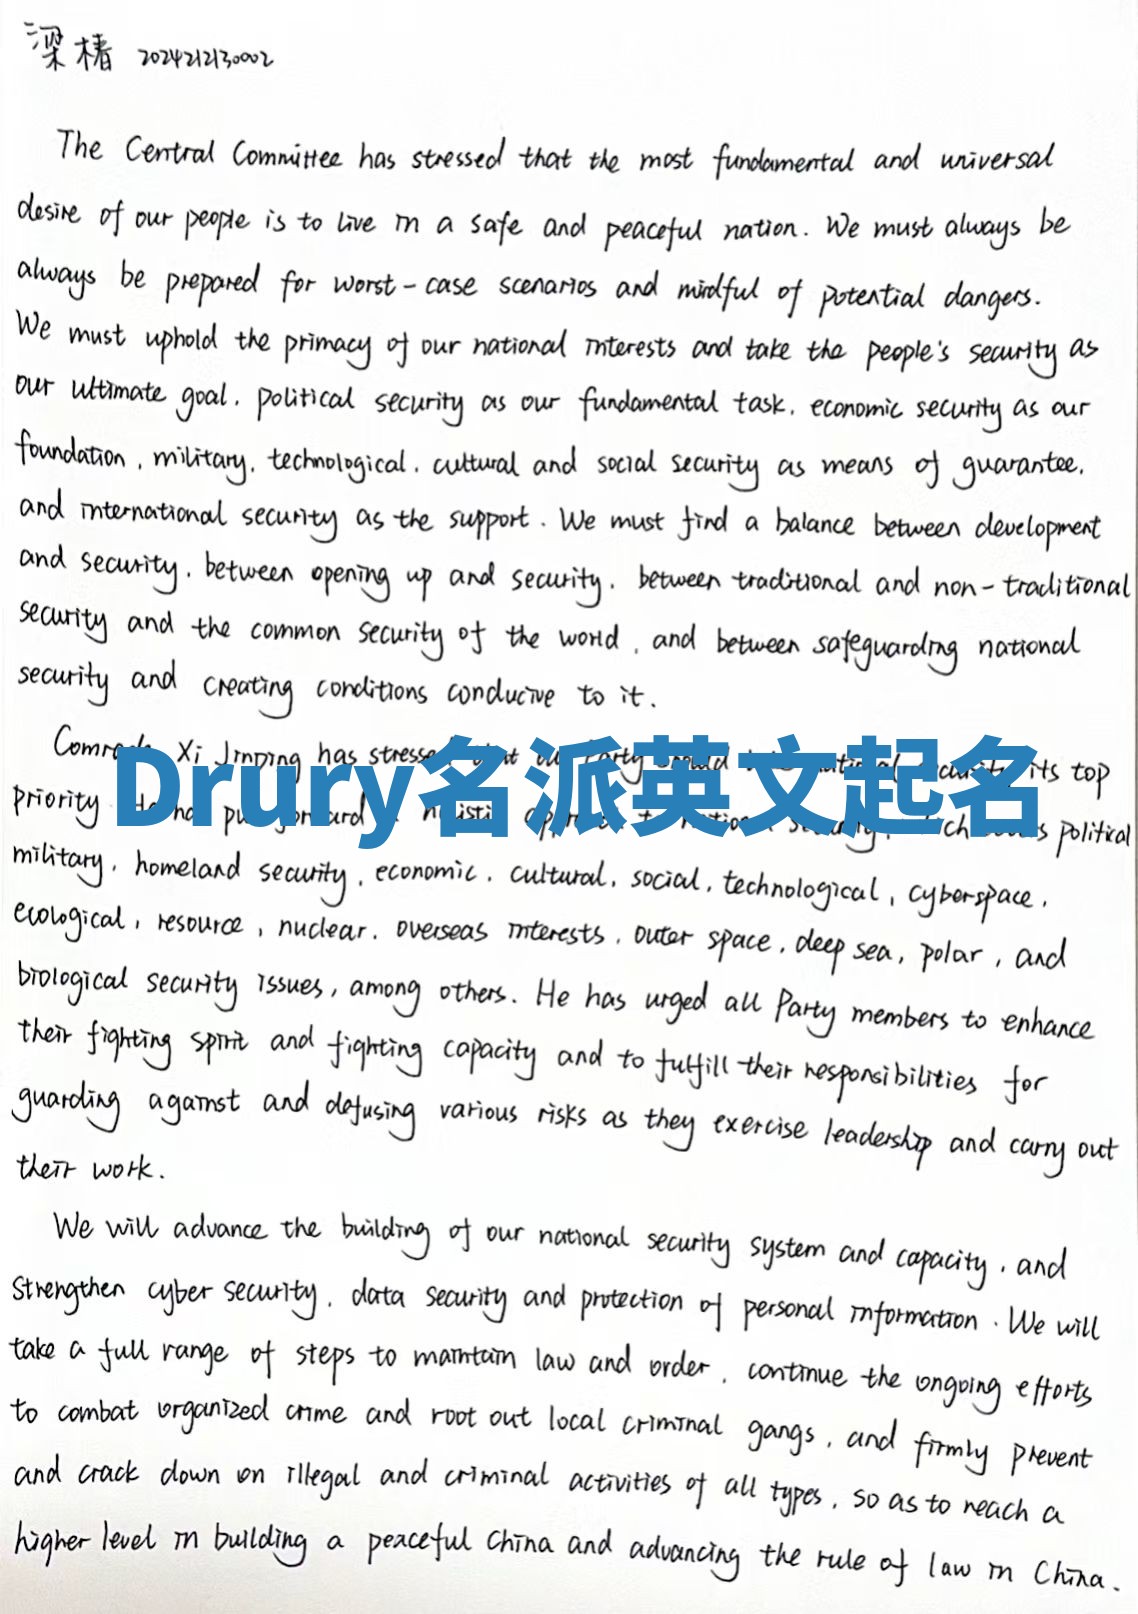 梁椿 2024212130002
The Central Committee has stressed that the most fundamental and universal
desire of our people is to live in a safe and peaceful nation. We must always be
always be prepared for worst-case scenarios and mindful of potential dangers.
We must uphold the primacy of our national interests and take the people's security as
our ultimate goal, political security as our fundamental task, economic security as our
foundation, military, technological, cultural and social security as means of guarantee,
and international security as the support. We must find a balance between development
and security, between opening up and security, between traditional and non-traditional
security and the common security of the world, and between safeguarding national
security and creating conditions conducive to it.
Xi Jinping has its top
Drury名派英文起名
priority political
military, homeland security, economic, cultural, social, technological, cyberspace,
ecological, resource, nuclear, overseas interests, outer space, deep sea, polar, and
biological security issues, among others. He has urged all Party members to enhance
their fighting spirit and fighting capacity and to fulfill their responsibilities for
guarding against and defusing various risks as they exercise leadership and carry out
their work.
We will advance the building of our national security system and capacity, and
strengthen cyber security, data security and protection of personal information. We will
take a full range of steps to maintain law and order, continue the ongoing efforts
to combat organized crime and root out local criminal gangs, and firmly prevent
and crack down on illegal and criminal activities of all types, so as to reach a
higher level in building a peaceful China and advancing the rule of law in China.